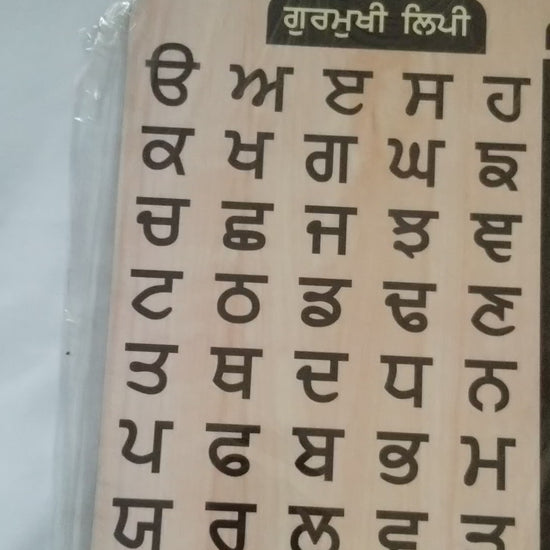 ਗੁਰਮੁਖੀ ਲਿਪੀ
ੳ ਅ ੲ ਸ ਹ
ਕ ਖ ਗ ਘ ਙ
ਚ ਛ ਜ ਝ ਞ
ਟ ਠ ਡ ਢ ਣ
ਤ ਥ ਦ ਧ ਨ
ਪ ਫ ਬ ਭ ਮ
ਯ ਰ ਲ ਵ ੜ